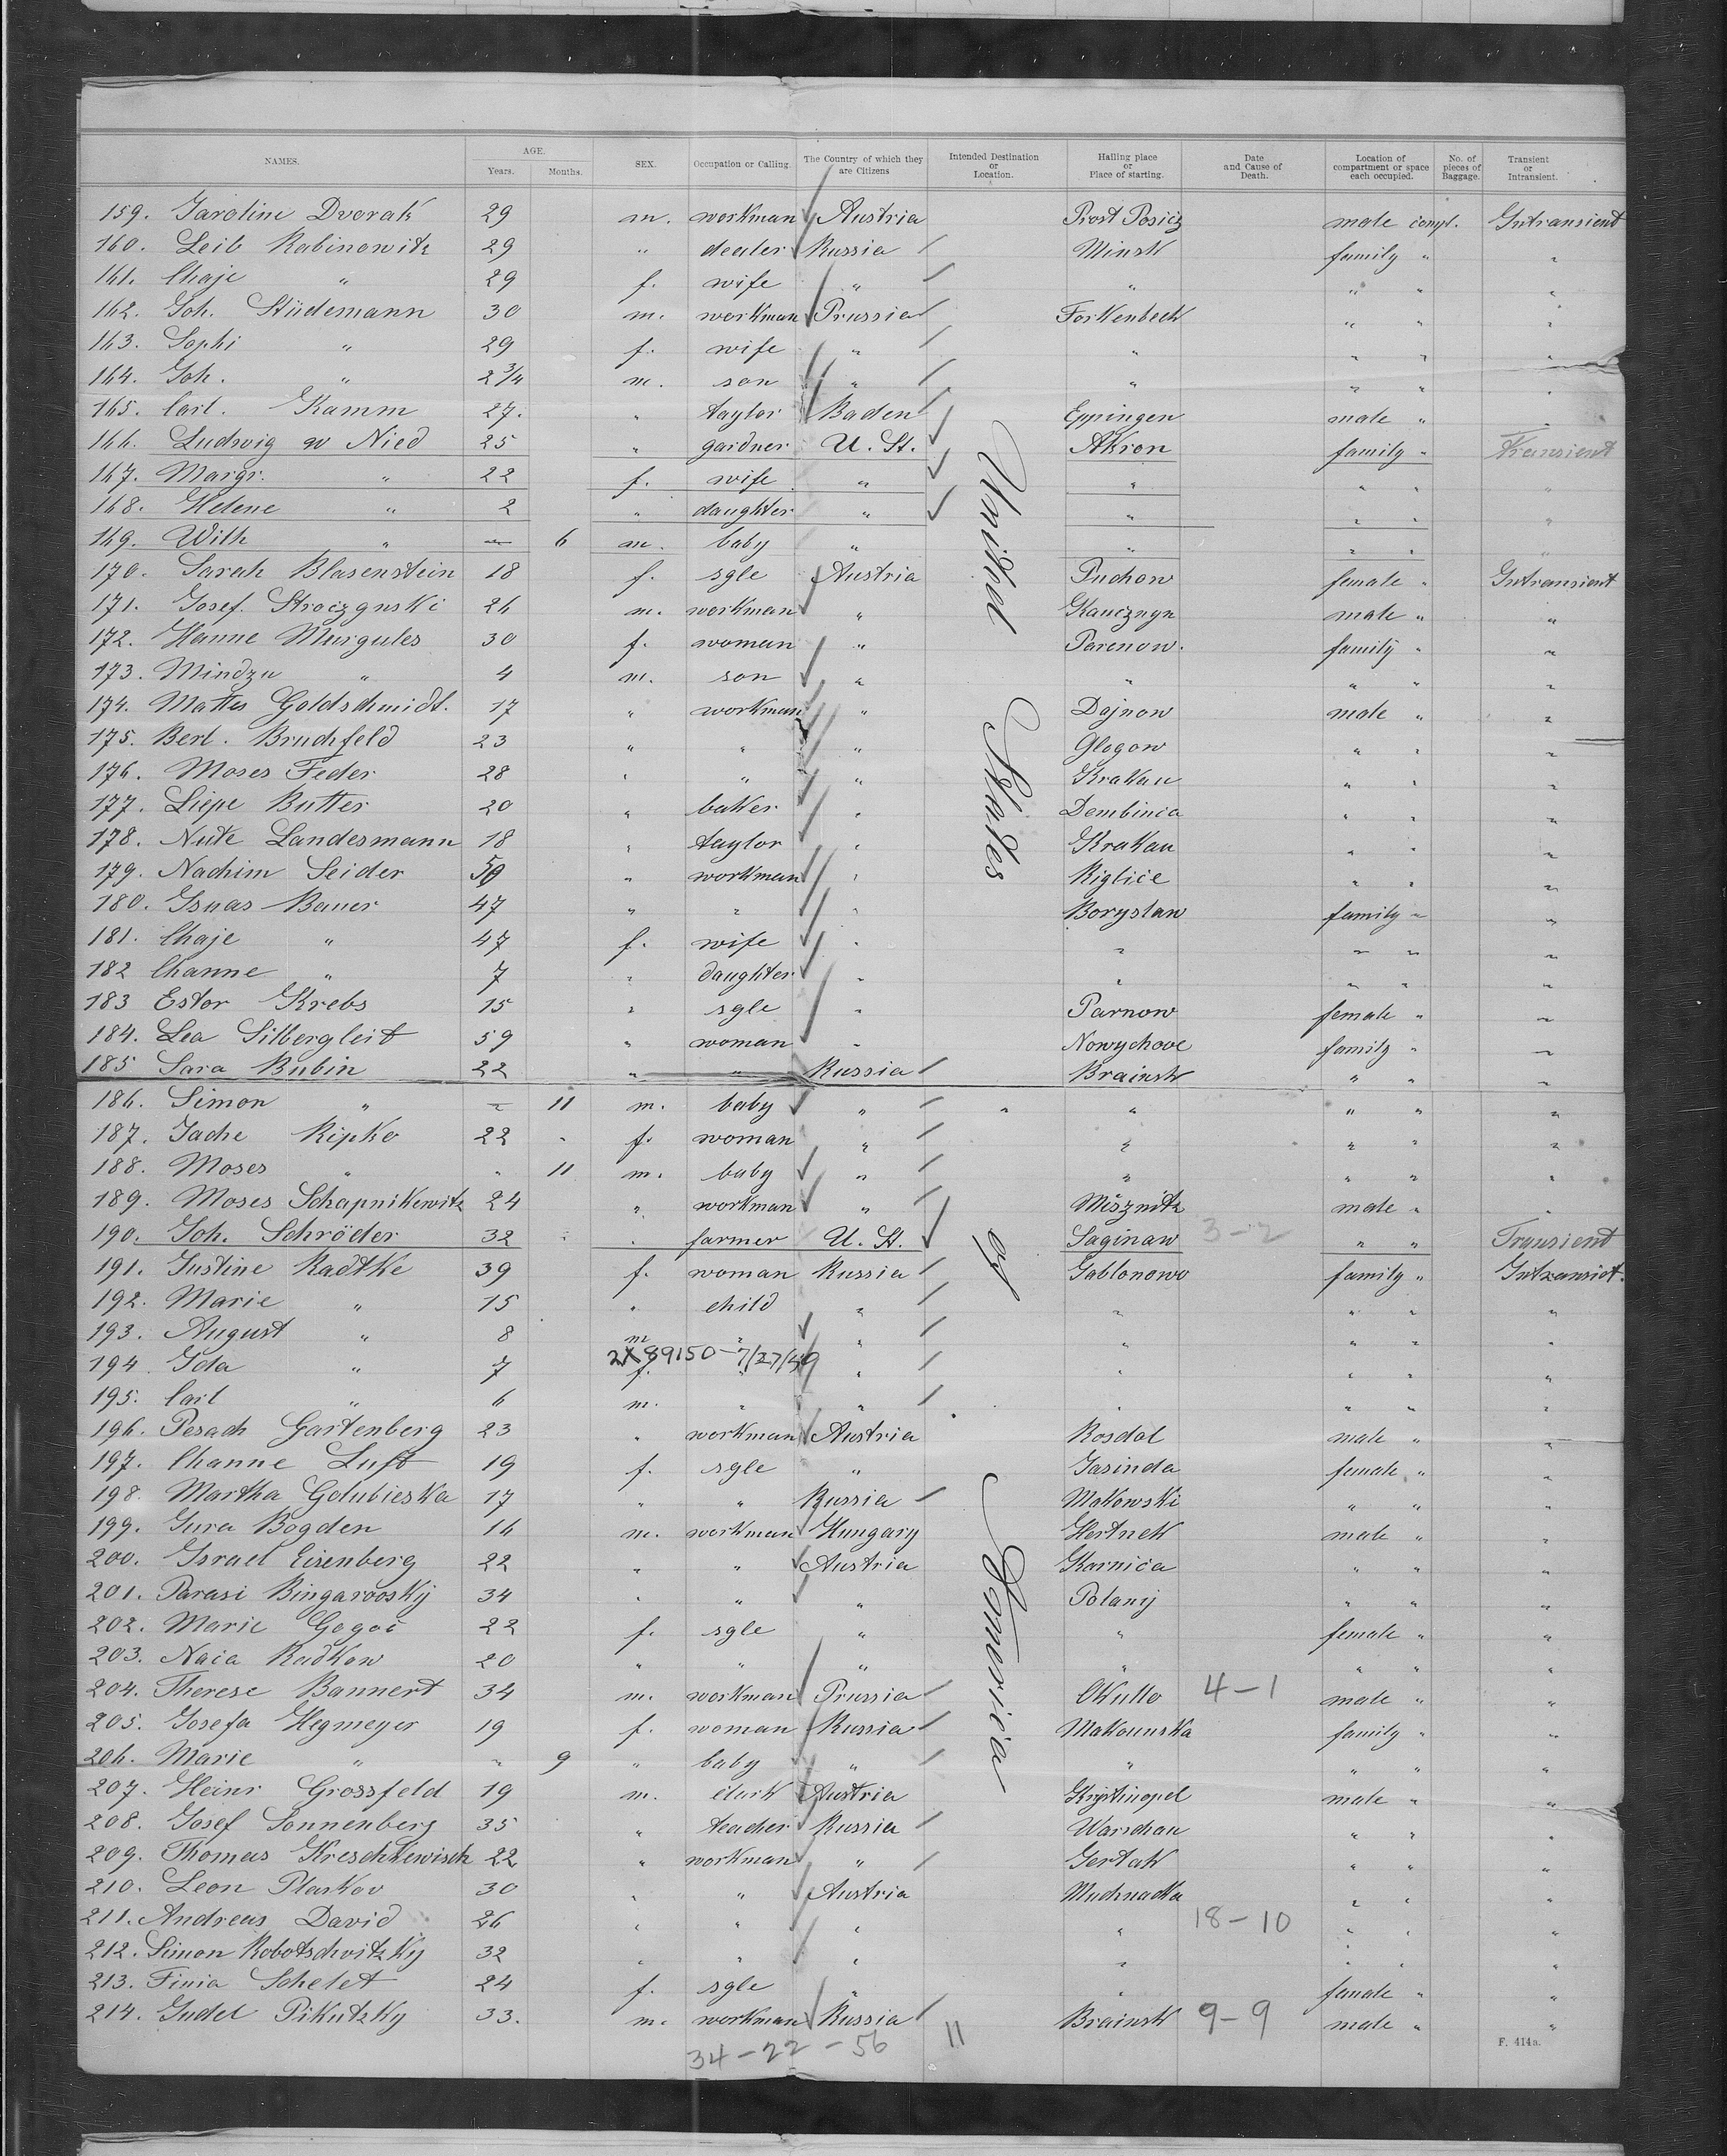 NAMES. AGE. Years. Months. SEX. Occupation or Calling. The Country of which they are Citizens Intended Destination or Location. Hailing place or Place of starting. Date and Cause of Death. Location of compartment or space each occupied. No. of pieces of Baggage. Transient or Intransient.
159. Jaroline Dvorak 29 m. workman Austria Prost Posicz male compt. Intransient
160. Leib Rabinowitz 29 " dealer Russia Minsk family " "
161. Chaje " 29 f. wife " " " " "
162. Joh. Stüdemann 30 m. workman Prussia Forkenbeck " " "
163. Sophi " 29 f. wife " " " " "
164. Joh. " 2 3/4 m. son " " " " "
165. Carl. Kamm 27. " taylor Baden Eppingen male " "
166. Ludwig Nied 25 " gardner U. St. Akron family " Transient
167. Margr. " 22 f. wife " " " " "
168. Helene " 2 " daughter " " " " "
169. Wilh " — 6 m. baby " " " " "
170. Sarah Blasenstein 18 f. sgle Austria Puchow female " Intransient
171. Josef. Stroczynski 26 m. workman " Kanczugn male " "
172. Hanne Murgules 30 f. woman " Parenow. family " "
173. Mindzu " 4 m. son " " " " "
174. Mattes Goldschmidt. 17 " workman " Dajnow male " "
175. Berl. Bruchfeld 23 " " " Glogow " " "
176. Moses Feder 28 " " " Krakau " " "
177. Liepe Butter 20 " baker " Dembinca " " "
178. Nute Landesmann 18 " taylor " Krakau " " "
179. Nachim Seider 50 " workman " Riglice " " "
180. Isuas Bauer 47 " " " Boryslaw family " "
181. Chaje " 47 f. wife " " " " "
182 Channe " 7 " daughter " " " " "
183 Ester Krebs 15 " sgle " Parnow female " "
184. Lea Silbergleit 59 " woman " Nowychove family " "
185 Sara Rubin 22 " " Russia Brainsk " " "
186. Simon " — 11 m. baby " " " " " "
187. Jache Ripko 22 " f. woman " " " " "
188. Moses " " 11 m. baby " " " " "
189. Moses Schapnikewitz 24 " workman " Misznitz male " "
190. Joh. Schröder 32 " " farmer U. St. Saginaw 3-2 " " Transient
191. Justine Radtke 39 f. woman Russia Jablonowo family " Intransiet.
192. Marie " 15 " child " " " " "
193. August " 8 m " " " " " "
2X89150-7/27/49
194. Ida " 7 f. " " " " " "
195. Carl " 6 m. " " " " " "
196. Pesach Gartenberg 23 " workman Austria Rosdol male " "
197. Channe Luft 19 f. sgle " Jasinda female " "
198. Martha Golubieska 17 " " Russia Makowski " " "
199. Jura Bogden 16 m. workman Hungary Hertnek male " "
200. Israel Eisenberg 22 " " Austria Karnica " " "
201. Parasi Bingaroosky 34 " " " Polany " " "
202. Marie Gogoc 22 f. sgle " " female " "
203. Naca Radkow 20 " " " " " " "
204. Therese Bannert 34 m. workman Prussia Okullo 4-1 male " "
205. Josefa Hegmeyer 19 f. woman Russia Makounska family " "
206. Marie " " 9 " baby " " " " "
207. Heinr Grossfeld 19 m. clark Austria Krystinopel male " "
208. Josef Sonnenberg 35 " teacher Russia Warschau " " "
209. Thomas Kreschkewisch 22 " workman " Gertak " " "
210. Leon Plaskov 30 " " Austria Muchnacka " " "
211. Andreas David 26 " " " " 18-10 " " "
212. Simon Robotschwitzky 32 " " " " " " "
213. Finia Schelet 24 f. sgle " " female " "
214. Judel Pikutzky 33. m. workman Russia Brainsk 9-9 male " "
34-22-56 11
F. 414a.
United States of America